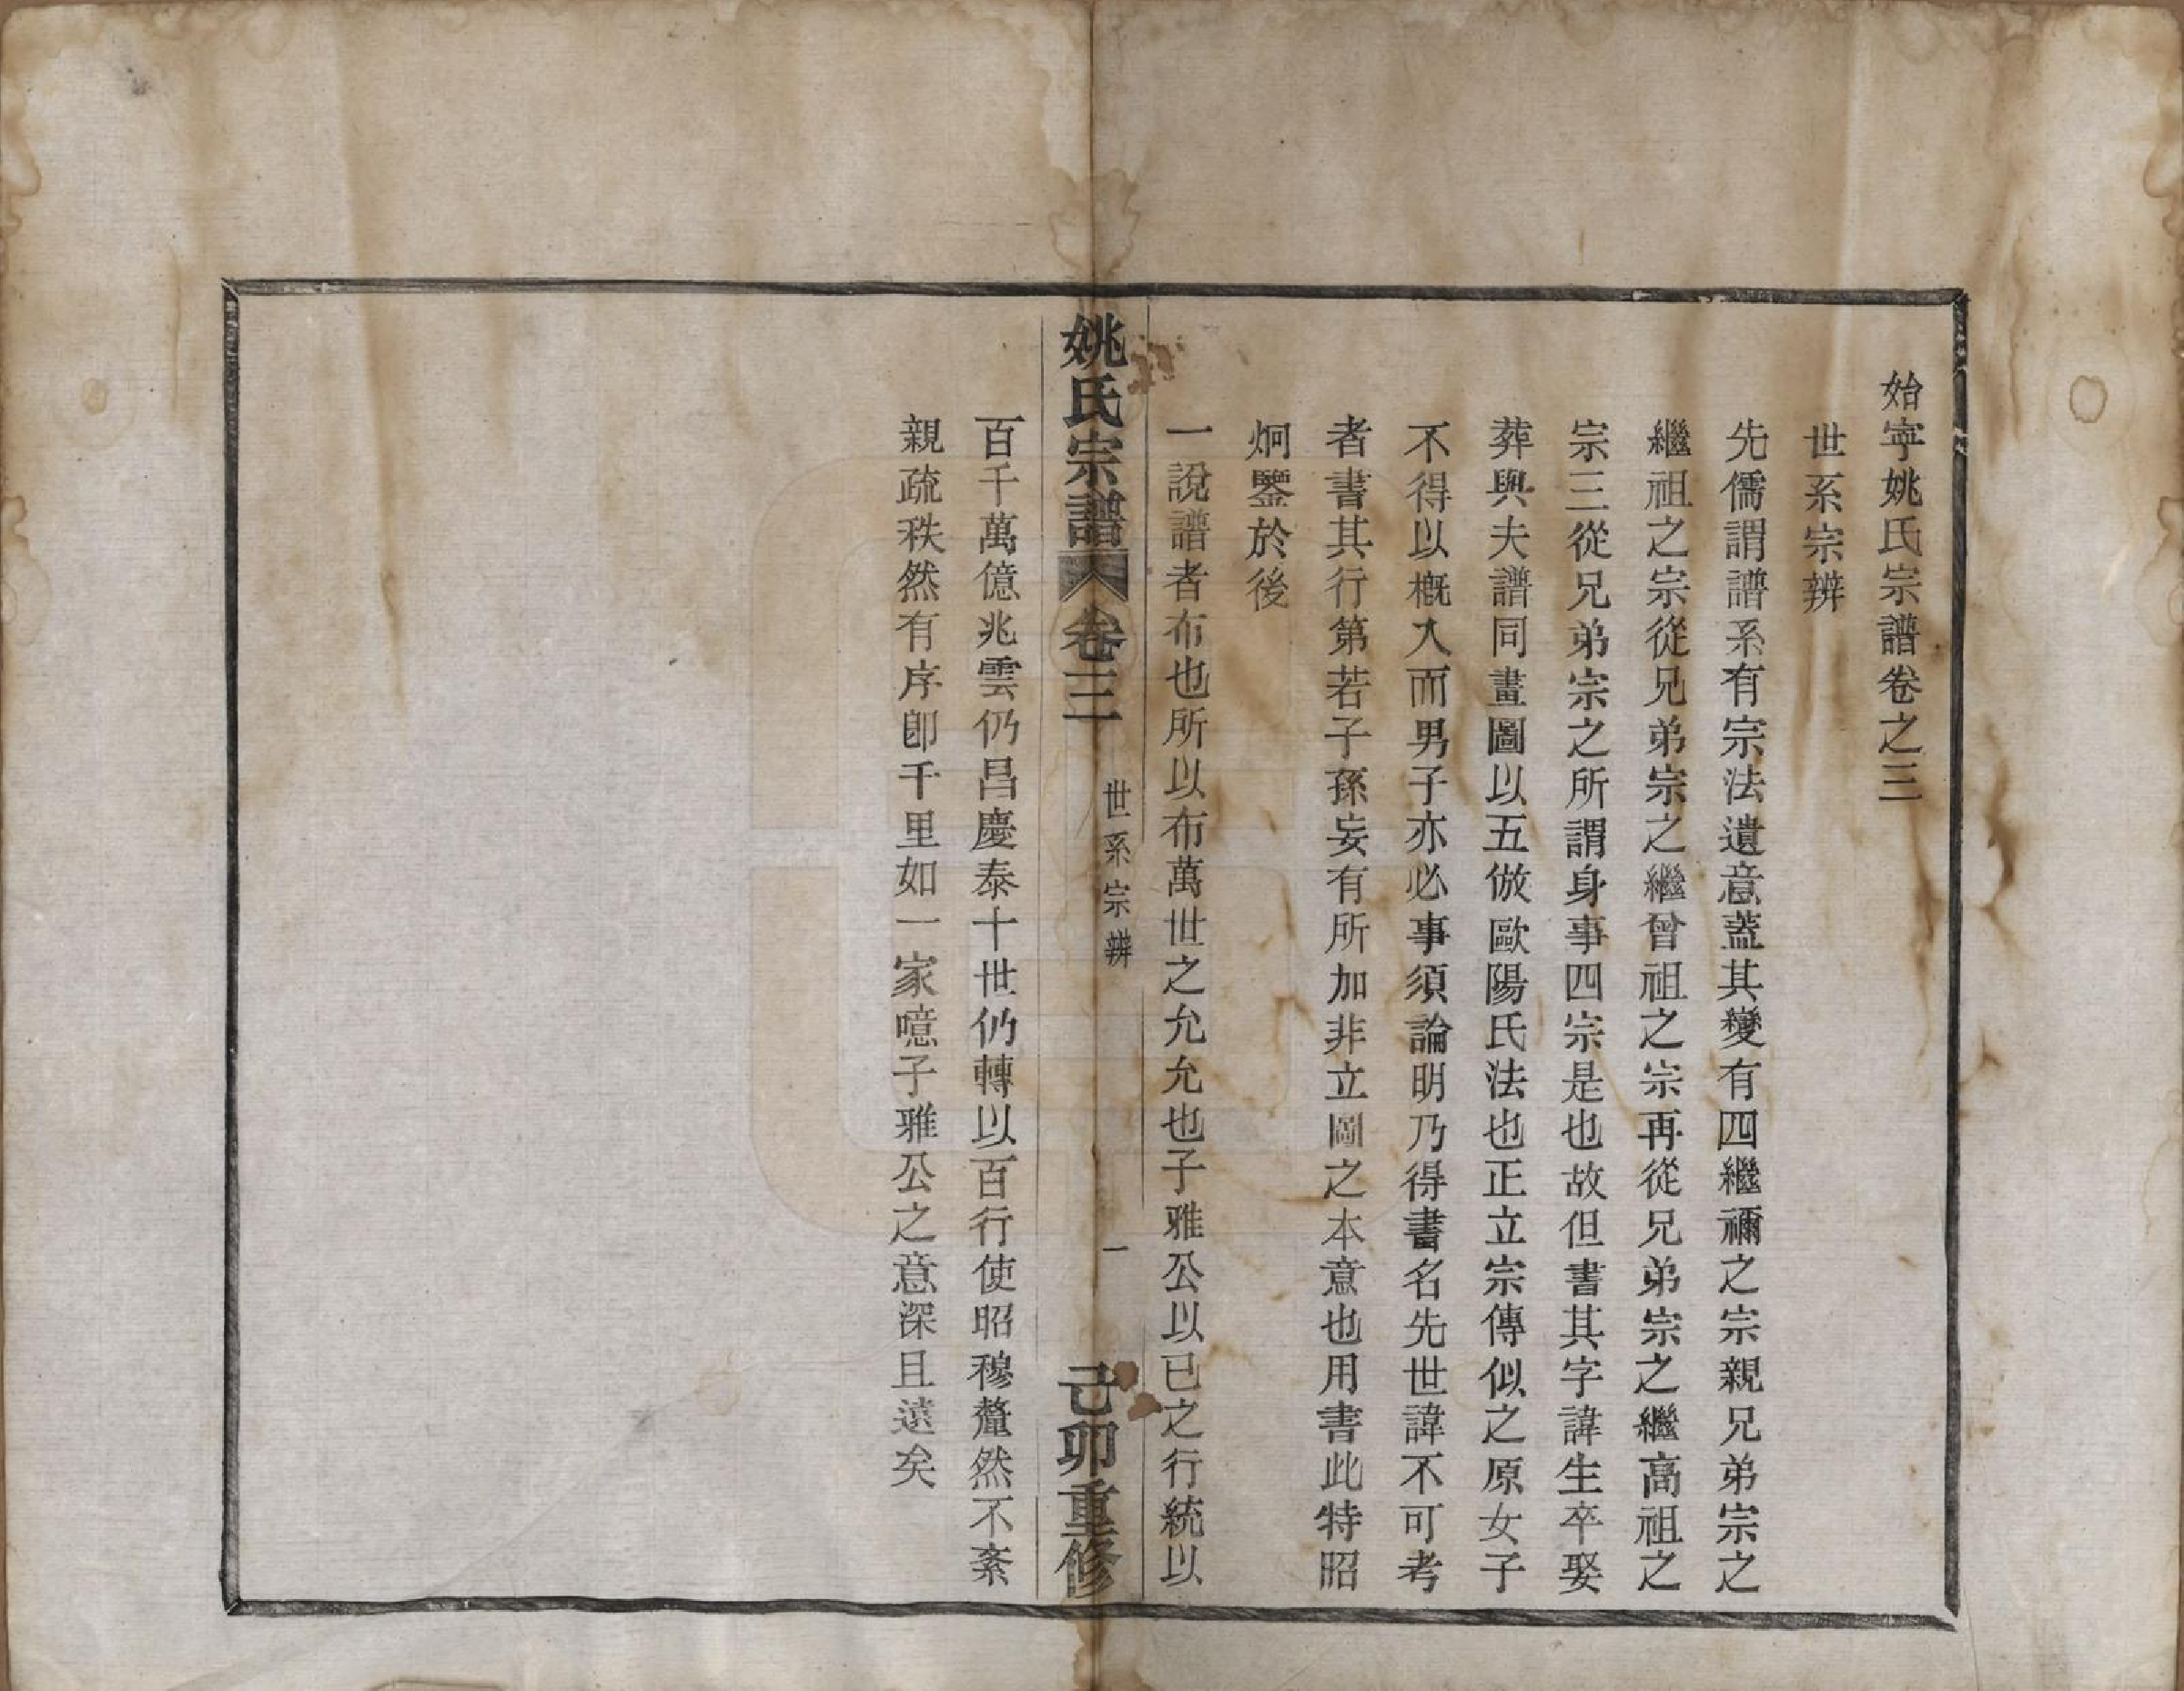 始寧姚氏宗譜卷之三
世系宗辨
先儒謂譜系有宗法遺意蓋其變有四繼禰之宗親兄弟宗之
繼祖之宗從兄弟宗之繼曾祖之宗再從兄弟宗之繼高祖之
宗三從兄弟宗之所謂身事四宗是也故但書其字諱生卒娶
葬與夫譜同畫圖以五倣歐陽氏法也正立宗傳似之原女子
不得以概入而男子亦必事須論明乃得書名先世諱不可考
者書其行第若子孫妄有所加非立圖之本意也用書此特昭
炯鑒於後
一說譜者布也所以布萬世之允允也子雅公以已之行統以
姚氏宗譜 卷三 世系宗辨 一 己卯重修
百千萬億兆雲仍昌慶泰十世仍轉以百行使昭穆釐然不紊
親疏秩然有序卽千里如一家噫子雅公之意深且遠矣